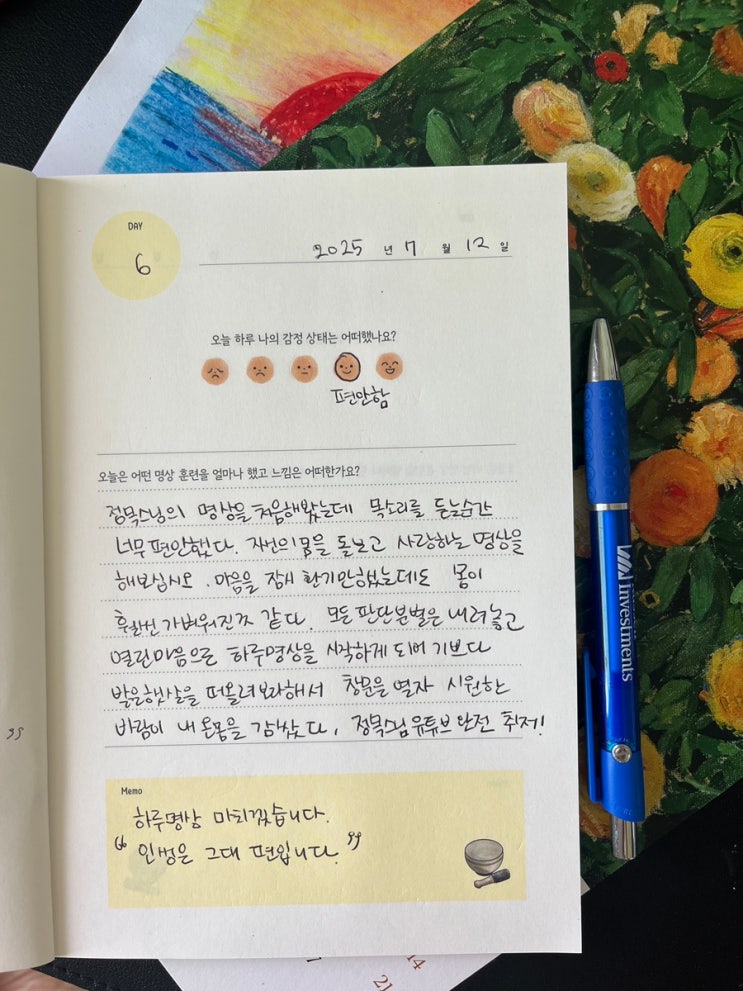 DAY
6
2025 년 7 월 12 일
오늘 하루 나의 감정 상태는 어떠했나요?
편안함
오늘은 어떤 명상 훈련을 얼마나 했고 느낌은 어떠한가요?
정목스님의 명상을 처음해봤는데 목소리를 듣는순간
너무 편안했다. 자신의 몸을 돌보고 사랑하는 명상을
해보십시오. 마음을 잠시 환기만했는데도 몸이
후한번 가벼워진것 같다. 모든 판단분별은 내려놓고
열린마음으로 하루명상을 시작하게 되어 기쁘다
밝은햇살을 떠올려보라해서 창문을 열자 시원한
바람이 내 온몸을 감쌌다. 정목스님 유튜브 완전 취저!
Memo
하루명상 마치겠습니다.
“ 인생은 그대 편입니다. ”
”
VM investments
14
21